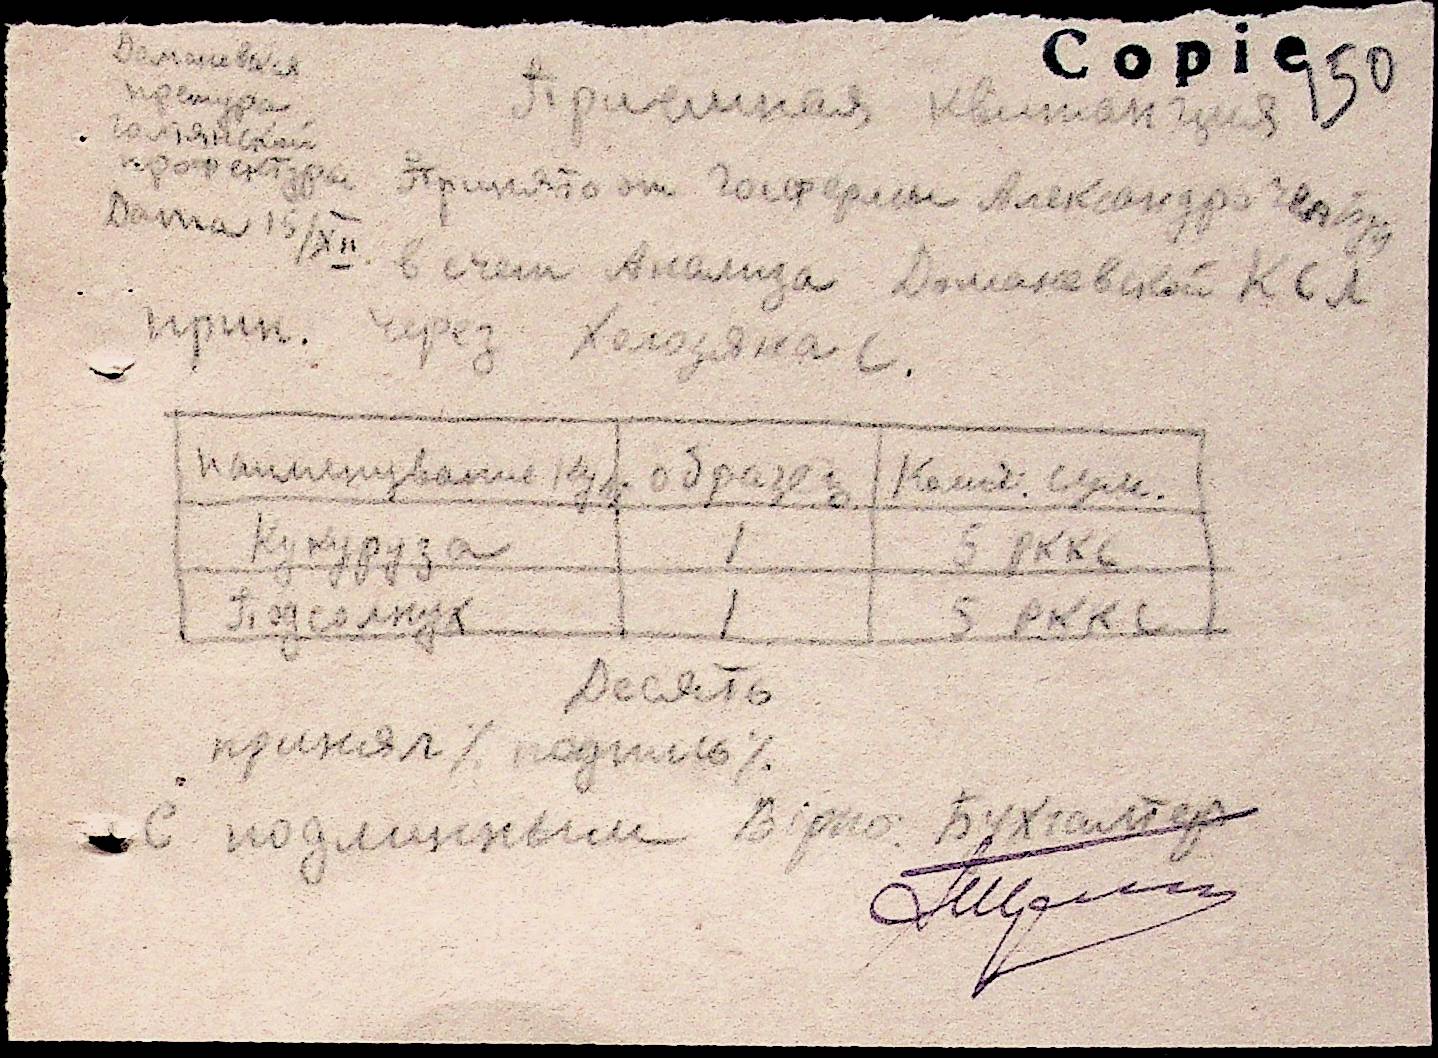 Copie
150
Доманевская
претура
Голтянской
префектуры
Дата 15/XII.
Приемная квитанция
Принято от Госфермы Александродар
в счет Анализа Доманевской КСЛ
прин. через Холозяна С.
Наименование Кул. образец Колич. сум.
Кукуруза 1 5 РККС
Подсолнух 1 5 РККС
Десять
принял % подпись %.
С подлинным Вірно: Бухгалтер